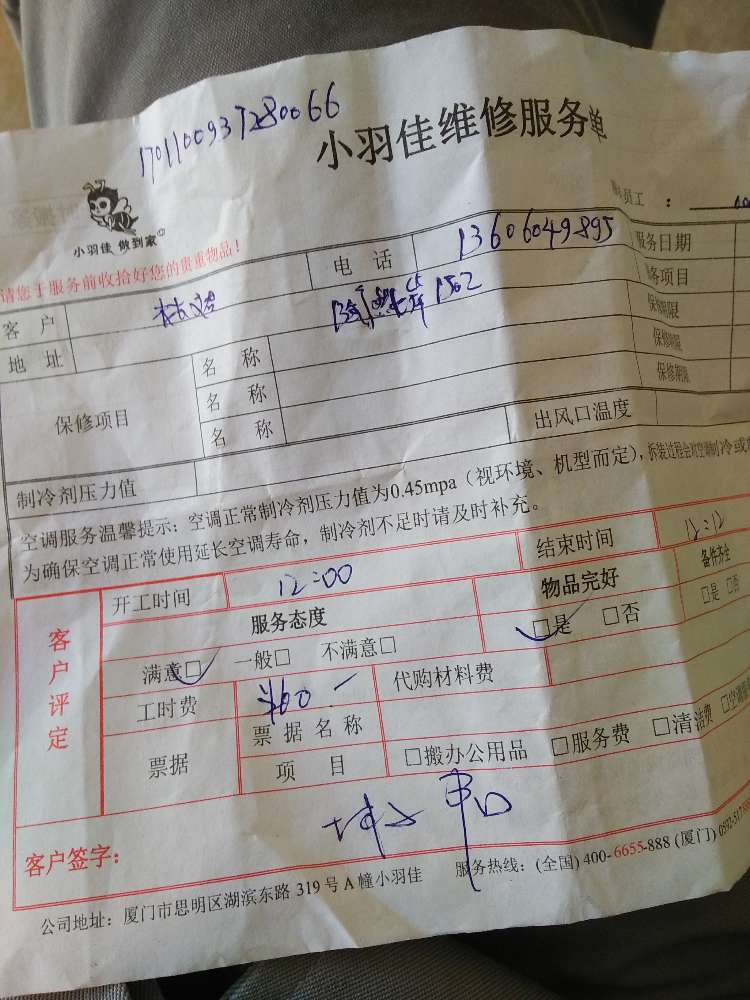 1701100937280066
小羽佳维修服务单
员工：
小羽佳 做到家
请您于服务前收拾好您的贵重物品！
电 话 13606049895 服务日期
客 户 务项目
地 址 1502 保修期限
保修项目 名 称 保修期限
名 称 保修期限
名 称
出风口温度
制冷剂压力值
空调服务温馨提示：空调正常制冷剂压力值为0.45mpa（视环境、机型而定），拆装过程会对空调制冷
为确保空调正常使用延长空调寿命，制冷剂不足时请及时补充。
客户评定
开工时间 12:00 结束时间 12:12
服务态度 物品完好 备件齐全
满意□ 一般□ 不满意□ □是 □否 □是 □否
工时费 ¥60- 代购材料费
票据 票 据 名 称
项 目 □搬办公用品 □服务费 □清洁费 □空调
客户签字：
公司地址：厦门市思明区湖滨东路 319 号 A 幢小羽佳 服务热线：(全国) 400-6655-888 (厦门) 0592-517